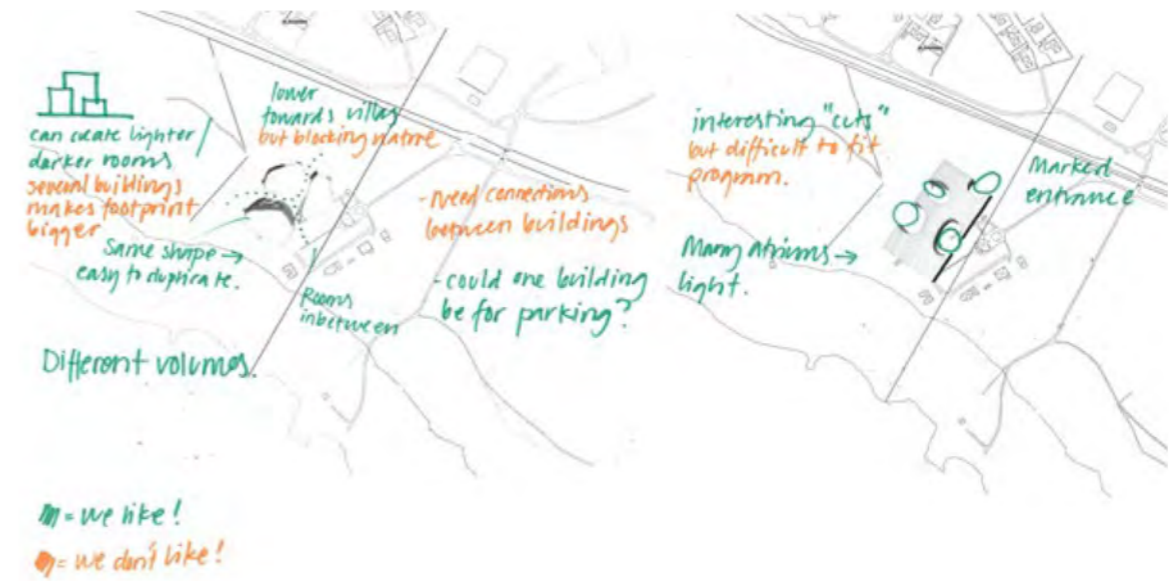 can create lighter
darker rooms
several buildings
makes footprint
bigger
lower
towards villas
but blocking nature
Same shape →
easy to duplicate.
Rooms
inbetween
- Need connections
between buildings
- could one building
be for parking?
Different volumes.
interesting "cuts"
but difficult to fit
program.
Marked
entrance
Many Atriums →
light.
= we like!
= we don't like!